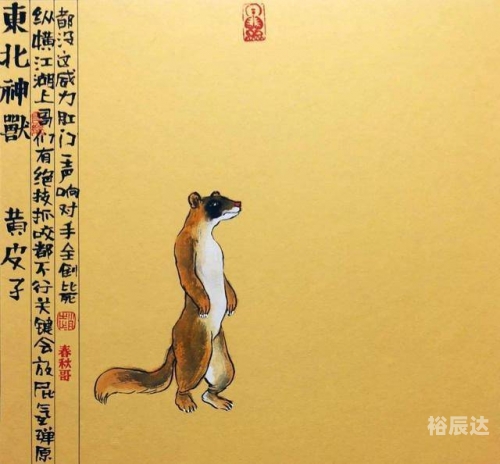 東北神獸 黄皮子
纵横江湖上哥们有绝技抓咬都不行关键会放屁氢弹原
都没这威力肛门一声响对手全倒毙
春秋哥
裕辰达